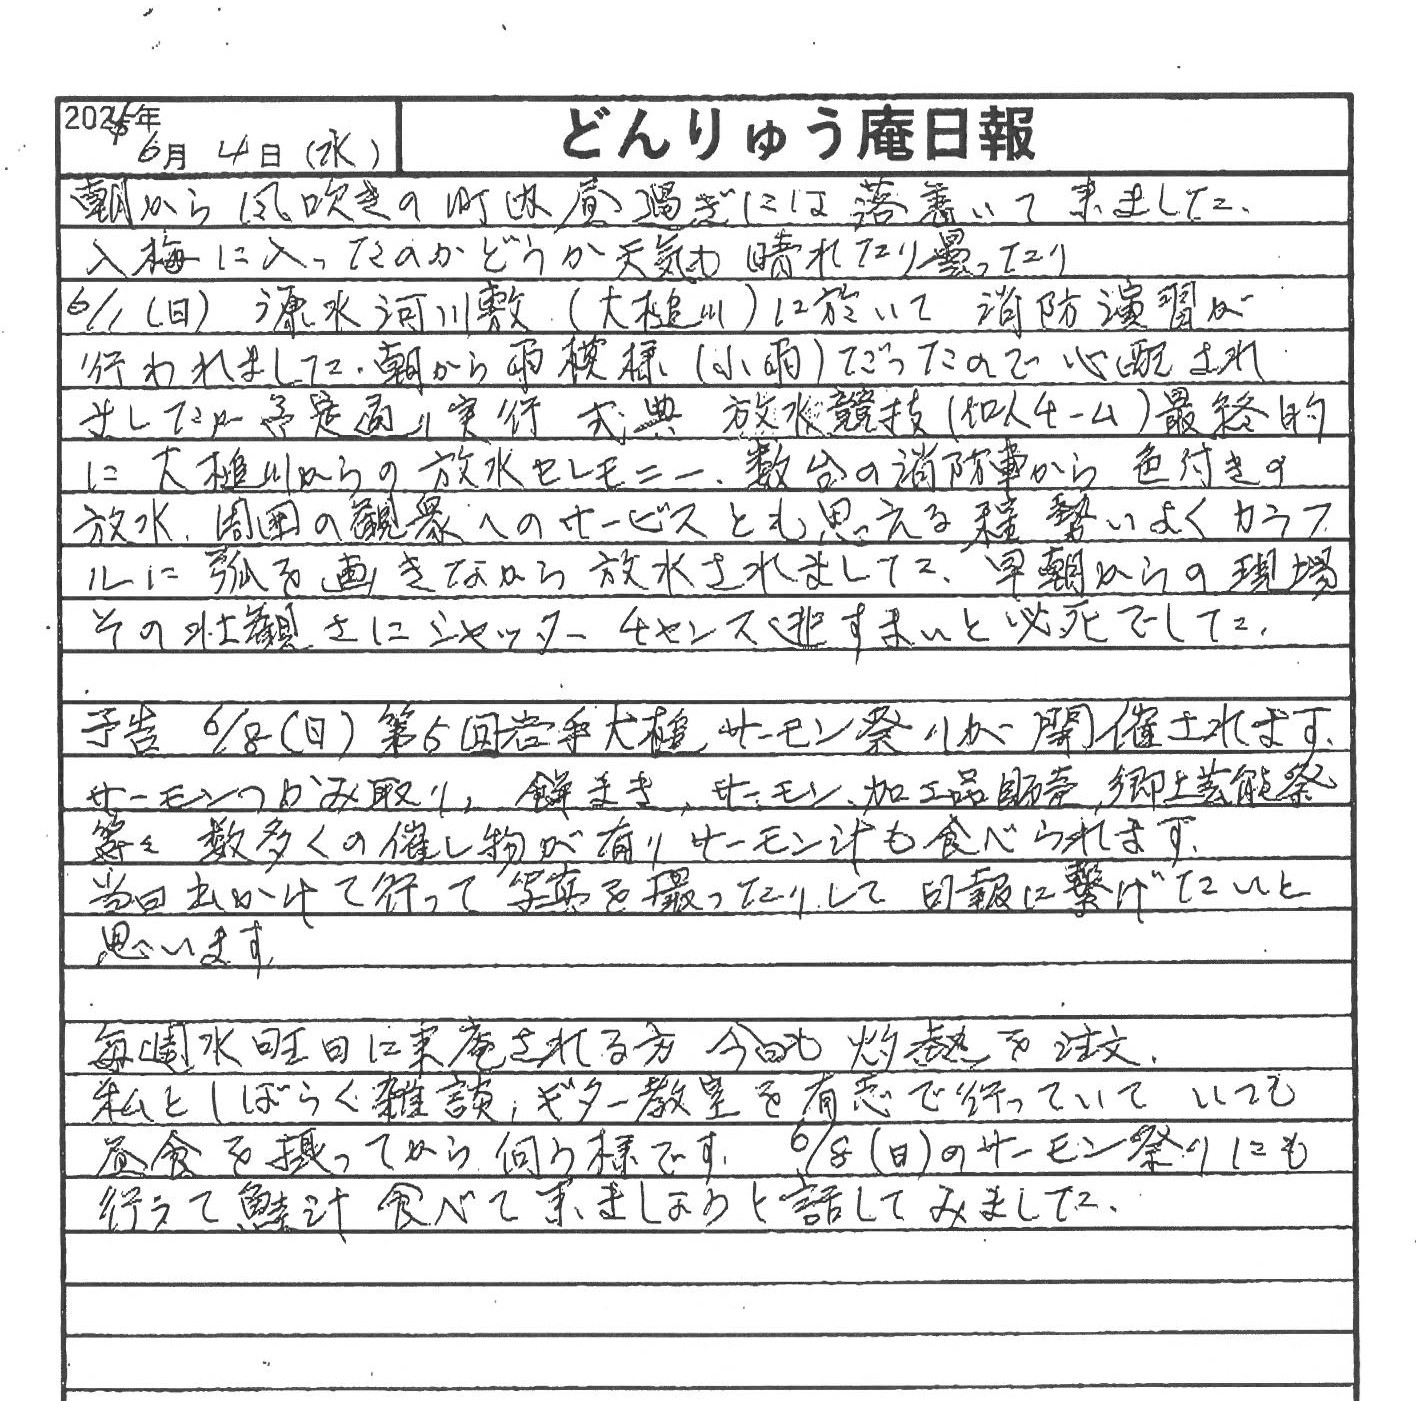 2025年
6月 4日(水)
どんりゅう庵日報
朝から風吹きの町内昼過ぎには落着いて来ました、
入梅に入ったのかどうか天気も晴れたり曇ったり
6/1(日) 源水河川敷(大槌川)に於いて 消防演習が
行われました、朝から雨模様(小雨)だったので心配され
ましたが予定通り実行 式典 放水競技(似人チーム)最終的
に大槌川からの放水セレモニー、数台の消防車から色付きの
放水、周囲の観衆へのサービスとも思える程勢いよくカラフ
ルに弧を画きながら放水されました、早朝からの現場
その壮観さにシャッターチャンス逃すまいと必死でした、
予告 6/8(日)第5回岩手大槌サーモン祭りが開催されます、
サーモンつかみ取り、餅まき、サーモン、加工品販売、郷土芸能祭
等々 数多くの催し物が有りサーモン汁も食べられます、
当日出かけて行って写真を撮ったりして日報に繋げたいと
思います
毎週水旺日に来庵される方 今日も灼熱を注文、
私としばらく雑談、ギター教室を有志で行っていて いつも
昼食を摂ってから伺う様です、 6/8(日)のサーモン祭りにも
行って鮭汁 食べて来ましょうと話してみました、